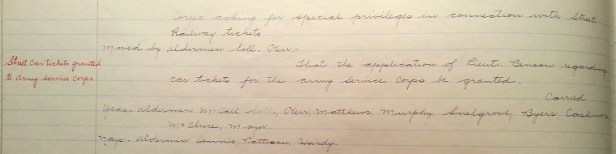 Corps asking for special privileges in connection with Street
Railway tickets
Moved by Alderman Coll. Orr.
Street Car tickets granted
to Army Service Corps
That the application of Lieut. Benson regarding
car tickets for the Army Service Corps be granted.
Carried
Yeas. Aldermen McCall Orr, Matthews, Murphy, Snelgrove, Byers, Cashman
McClure, Mayor
Nays. Aldermen Dennis, Pattison, Hardy